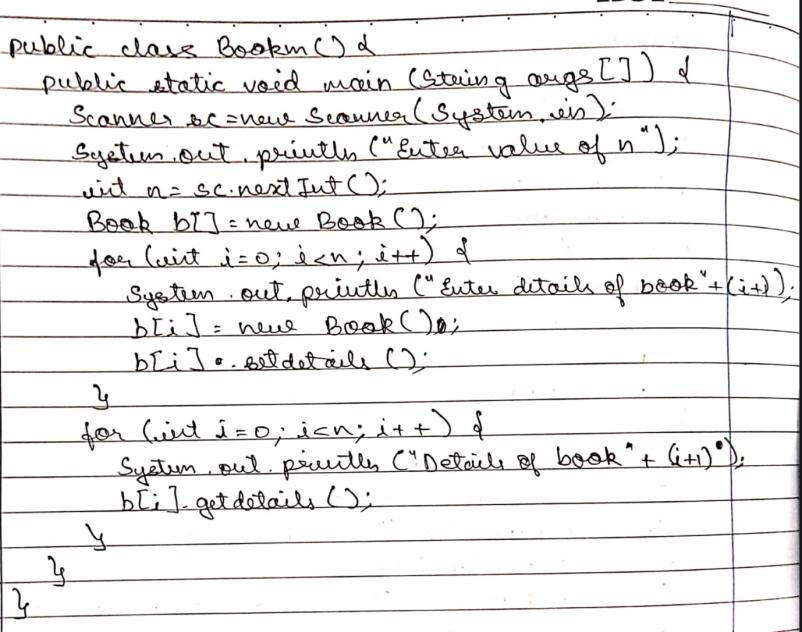 public class Bookm() {
public static void main (String args[]) {
Scanner sc = new Scanner(System.in);
System.out.println("Enter value of n");
int n = sc.nextInt();
Book b[] = new Book();
for (int i=0; i<n; i++) {
System.out.println("Enter details of book"+(i+1));
b[i] = new Book();
b[i].setdetails();
}
for (int i=0; i<n; i++) {
System.out.println("Details of book"+(i+1)");
b[i].getdetails();
}
}
}